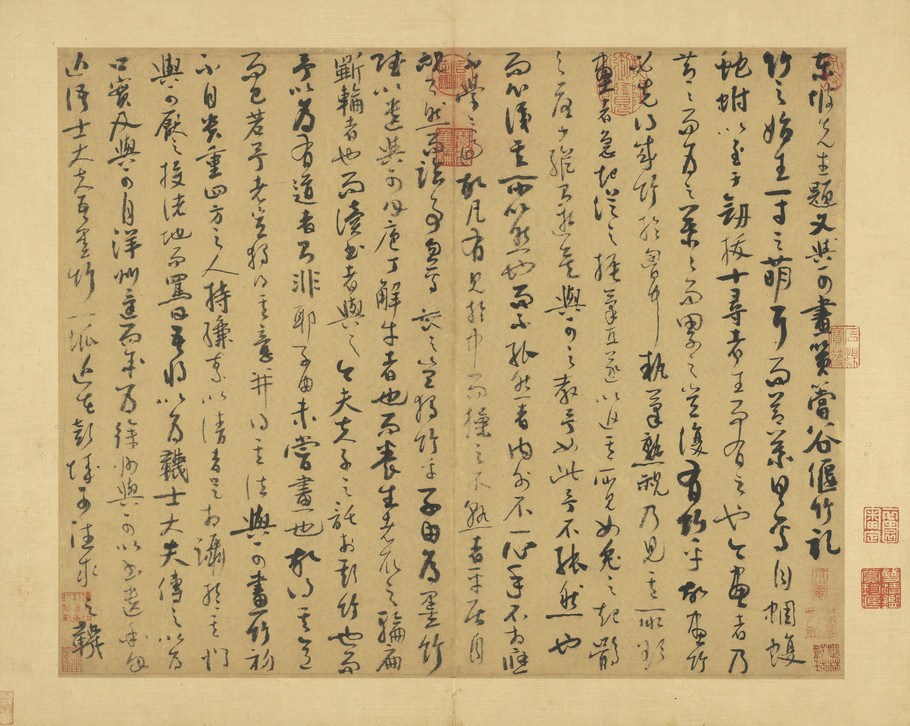 東坡先生題文與可畫篔簹谷偃竹記
竹之始生一寸之萌耳而節葉具焉自蜩蝮
蛇蚹以至于劍拔十尋者生而有之也今畫者乃
節節而為之葉葉而累之豈復有竹乎故畫竹
必先得成竹於胸中執筆熟視乃見其所欲
畫者急起從之振筆直遂以追其所見如兔之起鶻
之落少縱則逝矣與可之教予如此予不能然也
而心識其所以然也而不能然者內外不一心手不相應
不學之過故凡有見於中而操之不熟者平居自
視了然而臨事忽焉喪之豈獨竹乎子由為墨竹
賦以遺與可曰庖丁解牛者也而養生者取之輪扁
斲輪者也而讀書者與之今夫夫子之託於斯竹也而
予以為有道者則非耶子由未嘗畫也故得其意
而已若予者豈獨得其意并得其法與可畫竹初
不自貴重四方之人持縑素以請者足相躡於其門
與可厭之投諸地而罵曰吾將以為韈士大夫傳之以為
口實及與可自洋州還而余為徐州與可以書遺余曰
近語士大夫吾墨竹一派近在彭城可往求之韈